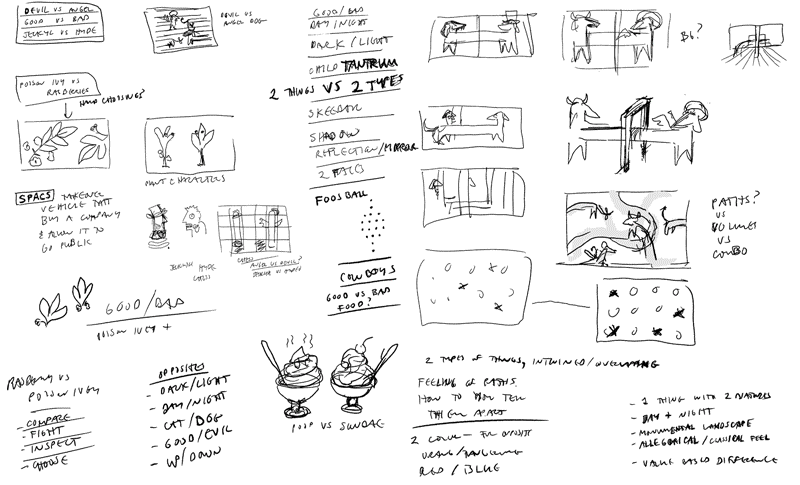 DEVIL VS ANGEL
GOOD VS BAD
JECKYLL VS HYDE
DEVIL VS
ANGEL DOG
POISON IVY VS
RASBERRIES
HAND CHOOSING?
MINT CHARACTERS
SPACS
VEHICLE THAT
BUY A COMPANY
& ALLOW IT TO
GO PUBLIC
JECKYLL HYDE
CHESS
CHESS
ANGEL VS DEVIL?
GOOD/BAD
POISON IVEY +
RASBERRY VS
POISON IVEY
- COMPARE
- FIGHT
- INSPECT
- CHOOSE
OPPOSITES
- DARK/LIGHT
- DAY/NIGHT
- CAT/DOG
- GOOD/EVIL
- UP/DOWN
GOOD/BAD
DAY/NIGHT
DARK/LIGHT
CHILD TANTRUM
2 THINGS VS 2 TYPES
SKEEBALL
SHADOW
REFLECTION/MIRROR
2 FACES
FOOSBALL
COWBOYS
GOOD VS BAD
FOOD?
POOP VS SUNDAE
BG?
PATHS?
VS
VOLUMES
VS
COMBO
2 TYPES OF THINGS, INTWINED/OVERLAPPING
FEELING OF PATHS.
HOW TO YOU TELL
THEM APART
RED/BLUE
- 1 THING WITH 2 NATURES
- DAY + NIGHT
- MONUMENTAL LANDSCAPE
- ALLEGORICAL/CLASSICAL FEEL
- VALUE BASED DIFFERENCE